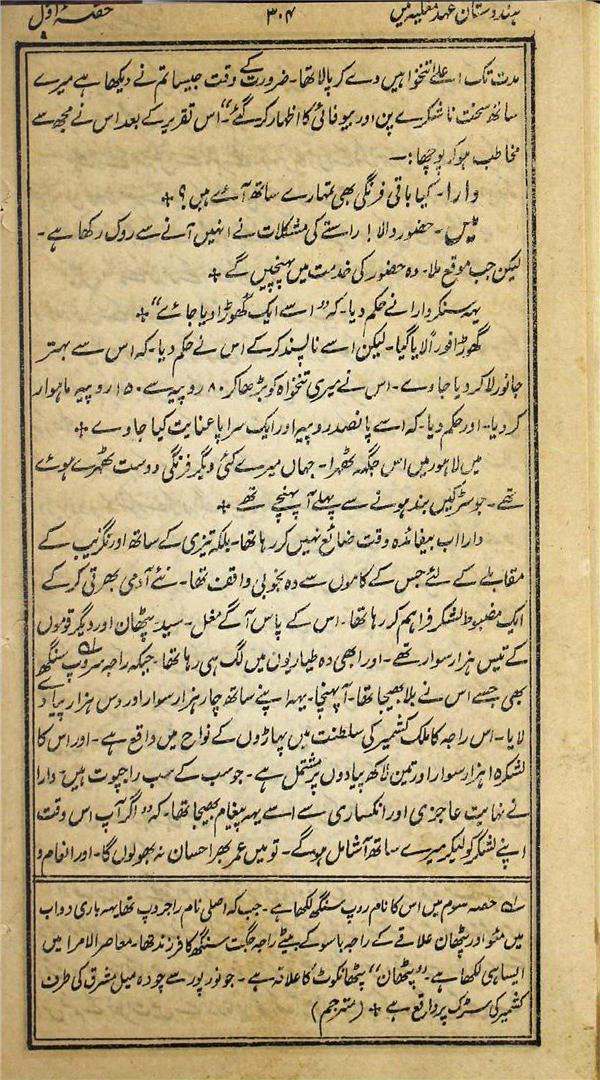 حصہ اول
۳۰۴
ہندوستان عہد مغلیہ میں
مدت تک اعلےٰ تنخواہیں دے کر پالا تھا۔ ضرورت کے وقت جیسا تم نے دیکھا ہے میرے
ساتھ سخت ناشکرے پن اور بیوفائی کا اظہار کر گئے"۔ اس تقریر کے بعد اس نے مجھ سے
مخاطب ہوکر پوچھا:۔
دارا۔ کیا باقی فرنگی بھی تمہارے ساتھ آئے ہیں؟ +
میں۔ حضور والا! راستے کی مشکلات نے انہیں آنے سے روک رکھا ہے۔
لیکن جب موقع ملا۔ وہ حضور کی خدمت میں پہنچیں گے +
یہہ سنکر دارا نے حکم دیا۔ کہ "اسے ایک گھوڑا دیا جائے" +
گھوڑا فوراً لایا گیا۔ لیکن اسے ناپسند کر کے اس نے حکم دیا۔ کہ اس سے بہتر
جانور لاکر دیا جاوے۔ اس نے میری تنخواہ کو بڑھا کر ۸۰ روپیہ سے ۱۵۰ روپیہ ماہوار
کر دیا۔ اور حکم دیا۔ کہ اسے پانصد روپیہ اور ایک سراپا عنایت کیا جاوے +
میں لاہور میں اس جگہہ ٹھہرا۔ جہاں میرے کئی دیگر فرنگی دوست ٹھہرے ہوئے
تھے۔ جو سڑکیں بند ہونے سے پہلے آ پہنچے تھے +
دارا اب بیفائدہ وقت ضائع نہیں کر رہا تھا۔ بلکہ تیزی کے ساتھ اورنگزیب کے
مقابلے کے لئے جس کے کاموں سے وہ بخوبی واقف تھا۔ نئے آدمی بھرتی کر کے
ایک مضبوط لشکر فراہم کر رہا تھا۔ اس کے پاس آگے مغل۔ سید۔ پٹھان اور دیگر قوموں
کے تیس ہزار سوار تھے۔ اور ابھی وہ طیاریوں میں لگ ہی رہا تھا۔ جبکہ راجہ سروپ سنگھ ؎۱
بھی جسے اس نے بلا بھیجا تھا۔ آ پہنچا۔ یہہ اپنے ساتھ چار ہزار سوار اور دس ہزار پیادے
لایا۔ اس راجہ کا ملک کشمیر کی سلطنت میں پہاڑوں کے نواح میں واقع ہے۔ اور اس کا
لشکر ۱۵ ہزار سوار اور تین لاکھ پیادوں پر مشتمل ہے۔ جو سب کے سب راجپوت ہیں۔ دارا
نے نہایت عاجزی اور انکساری سے اسے یہہ پیغام بھیجا تھا۔ کہ "اگر آپ اس وقت
اپنے لشکر کو لیکر میرے ساتھ آ شامل ہوگے۔ تو میں عمر بھر احسان نہ بھولوں گا۔ اور انعام و
؎۱ حصہ سوم میں اس کا نام روپ سنگھ لکھا ہے۔ جب کہ اصلی نام راجروپ تھا یہہ باری دواب
میں مئو اور پٹھان علاقے کے راجہ باسو کے بیٹے راجہ جگت سنگھ کا فرزند تھا۔ معاصر الامرا میں
ایسا ہی لکھا ہے۔ "پٹھان" پٹھانکوٹ کا علاقہ ہے۔ جو نورپور سے چودہ میل مشرق کی طرف
کشمیر کی سڑک پر واقع ہے + (مترجم)